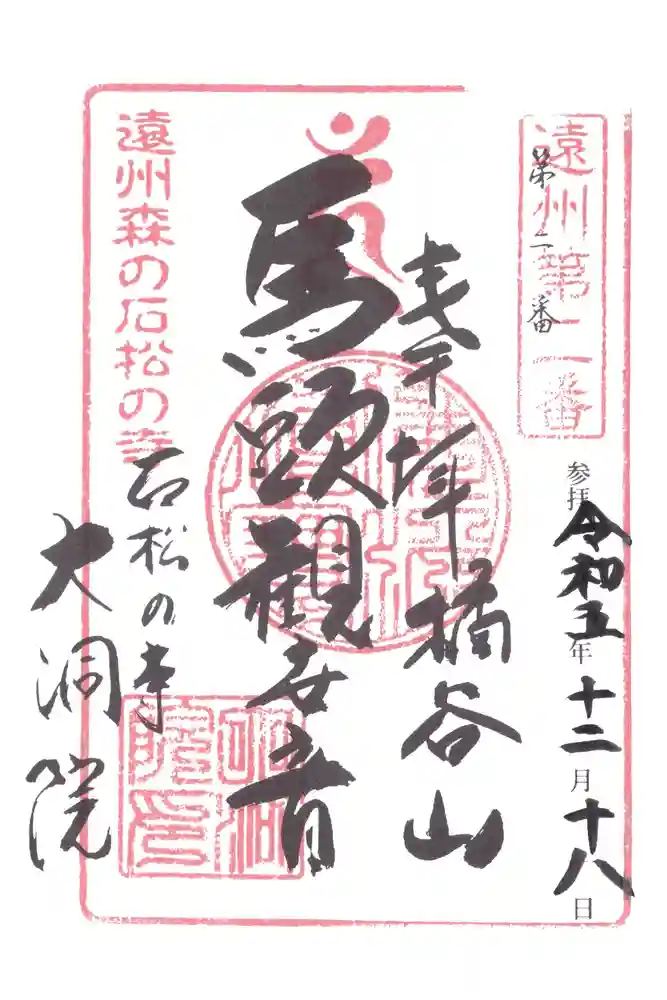 遠州第二番
第二番
参拝 令和五年十二月十八日
橘谷山
馬頭観世音
遠州森の石松の寺
石松の寺
大洞院